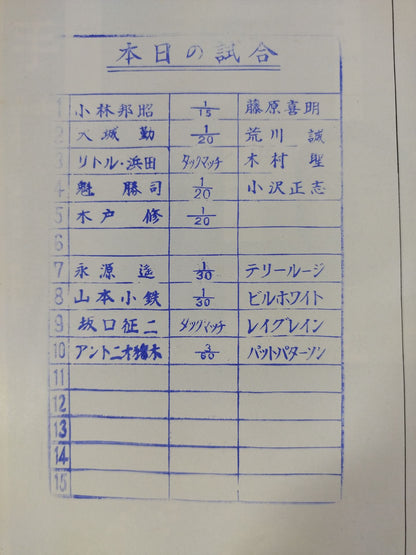 本日の試合
1 小林邦昭 1/15 藤原喜明
2 大城 勤 1/20 荒川 誠
3 リトル・浜田 タッグマッチ 木村 聖
4 魁 勝司 1/20 小沢正志
5 木戸 修 1/20
6
7 永源 遥 1/30 テリールージ
8 山本小鉄 1/30 ビルホワイト
9 坂口征二 タッグマッチ レイグレイン
10 アントニオ猪木 3/60 パットパターソン
11
12
13
14
15